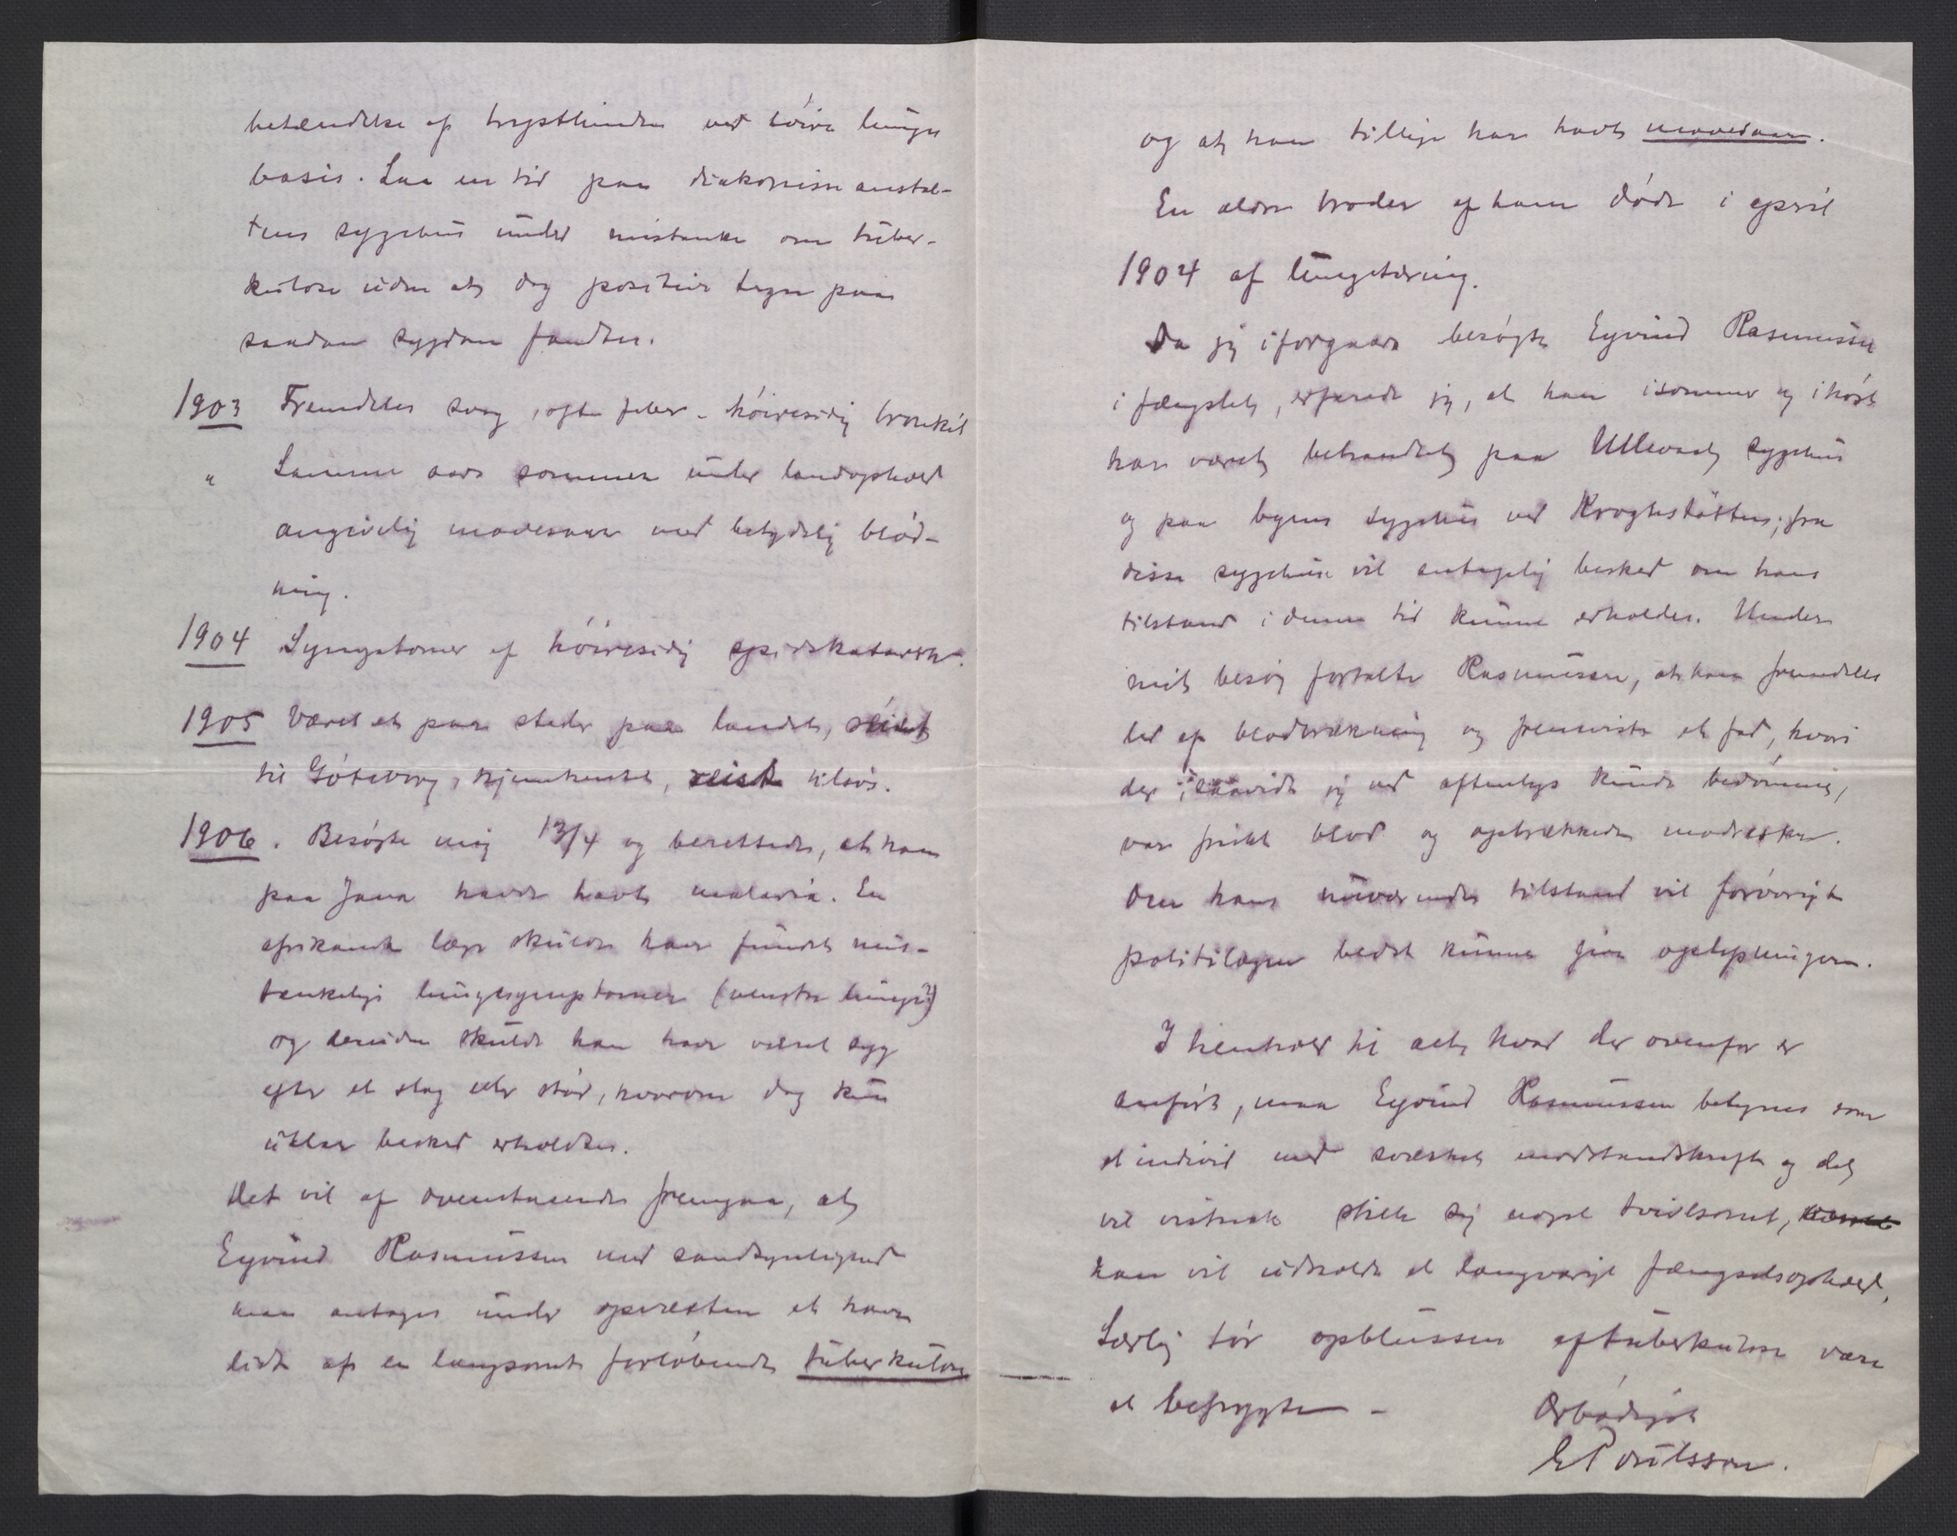 betændelse af brysthinden ved høire lunges
basis. Laa en tid paa diakonisseanstal-
tens sygehus under mistanke om tuber-
kulose uden at dog positive tegn paa
saadan sygdom fandtes.
1903 Fremdeles svag, ofte feber - høiresidig bronkit
" Samme aars sommer under landophold
angivelig mavesaar med betydelig blød-
ning.
1904 Symptomer af høiresidig spidskatarrh.
1905 Været et par steder paa landet, reist
til Göteborg, hjemkommet, reist tilsøs.
1906. Besøgte mig 13/4 og berettede, at han
paa Java havde havt malaria. En
afrikansk læge skulde have fundet mis-
tænkelige lungesymptomer (venstre lunge?)
og desuden skulde han have været syg
efter et slag eller stød, hvorom dog kun
uklar besked erholdtes.
Det vil af ovenstaaende fremgaa, at
Eyvind Rasmussen med sandsynlighed
maa antages under opvæksten at have
lidt af en langsomt forløbende tuberkulose
og at han tillige har havt mavesaar.
En ældre broder af ham døde i april
1904 af lungetæring.
Da jeg iforgaars besøgte Eyvind Rasmussen
i fængslet, erfarede jeg, at han isommer og ihøst
har været behandlet paa Ullevaal sygehus
og paa byens sygehus ved Kroghstøtten; fra
disse sygehuse vil antagelig besked om hans
tilstand i denne tid kunne erholdes. Under
mit besøg fortalte Rasmussen, at han fremdeles
led af blodbrækning og fremviste et fad, hvori
der, saavidt jeg ved aftenlys kunde bedømme,
var friskt blod og opbrækkede madrester.
Om hans nuværende tilstand vil forøvrigt
politilægen bedst kunne give oplysninger.
I henhold til alt, hvad der ovenfor er
anført, maa Eyvind Rasmussen betegnes som
et individ med svækket modstandskraft og det
vil vistnok stille sig noget tvilsomt,
han vil udholde et langvarigt fængselsophold.
Særlig tør opblussen af tuberkulose være
at befrygte -
Ærbødigst
E Poulsson.